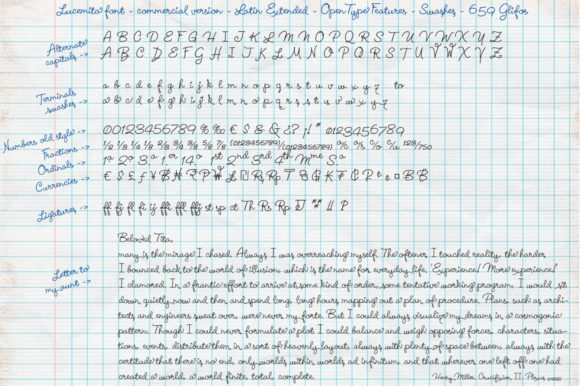 Lucemita font - commercial version - Latin Extended - OpenType Features - Swashes - 659 Glifos
Alternate capitals ->
A B C D E F G H I J K L M N O P Q R S T U V W X Y Z
A B C D E F G H I J K L M N O P Q R S T U V W X Y Z
Terminals swashes ->
a b c d e f g h i j k l m n o p q r s t u v w x y z to
a b c d e f g h i j k l m n o p q r s t u v w x y z
Numbers old style ->
00123456789 % ‰ € $ & & ¿? ¡! * 0123456789
Fractions ->
½ ⅓ ¼ ⅕ ⅙ ⅛ ⅔ (0123456789)/(0123456789) 128/750
Ordinals ->
1º 2º 3º 1er 14º 1st 2nd 3rd 4th Mme Sª
Currencies ->
€ $ £ ƒ ¥
Ligatures ->
ff fj fl ft ij ffi ffl ffj st sp ct Th Rs Rp
Letter to my aunt ->
Beloved Tita,
many is the mirage I chased. Always I was overreaching myself. The oftener I touched reality, the harder
I bounced back to the world of illusion, which is the name for everyday life. 'Experience! More experience!'
I clamored. In a frantic effort to arrive at some kind of order, some tentative working program, I would sit
down quietly now and then and spend long, long hours mapping out a plan of procedure. Plans, such as archi-
tects and engineers sweat over, were never my forte. But I could always visualize my dreams in a cosmogonic
pattern. Though I could never formulate a plot I could balance and weigh opposing forces, characters, situa-
tions, events, distribute them in a sort of heavenly layout, always with plenty of space between, always with the
certitude that there is no end, only worlds within worlds ad infinitum, and that wherever one left off one had
created a world, a world finite, total, complete.
Henry Miller, Crucifixion II: Plexus